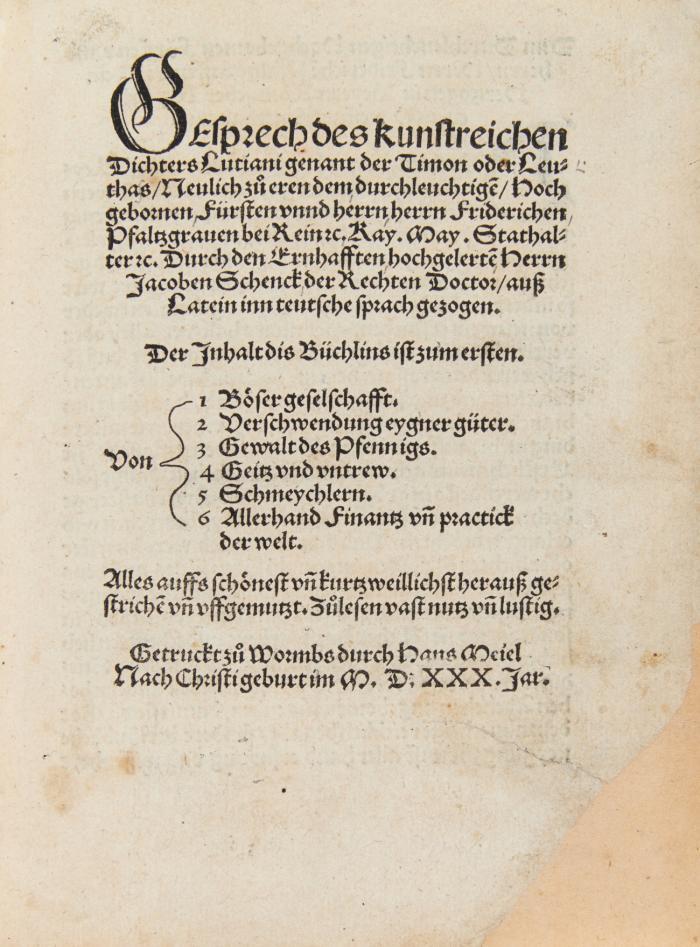 GEsprech des kunstreichen
Dichters Lutiani genant der Timon oder Leu⸗
thas/Neulich zů eren dem durchleuchtigẽ/Hoch
gebornen Fürsten vnnd herrn herrn Friderichen,
Pfaltzgrauen bei Rein ꝛc. Kay. May. Stathal⸗
ter ꝛc. Durch den Ernhafften hochgelertẽ Herrn
Jacoben Schenck der Rechten Doctor/auß
Latein inn teutsche sprach gezogen.
Der Inhalt dis Büchlins ist zum ersten.
Von
1 Böser geselschafft.
2 Verschwendung eygner güter.
3 Gewalt des Pfennigs.
4 Geitz vnd vntrew.
5 Schmeychlern.
6 Allerhand Finantz vñ practick
der welt.
Alles auffs schönest vñ kurtzweillichst herauß ge⸗
strichẽ vñ vffgemutzt. Zůlesen vast nutz vñ lustig.
Getruckt zů Wormbs durch Hans Meiel
Nach Christi geburt im M. D. XXX. Jar.